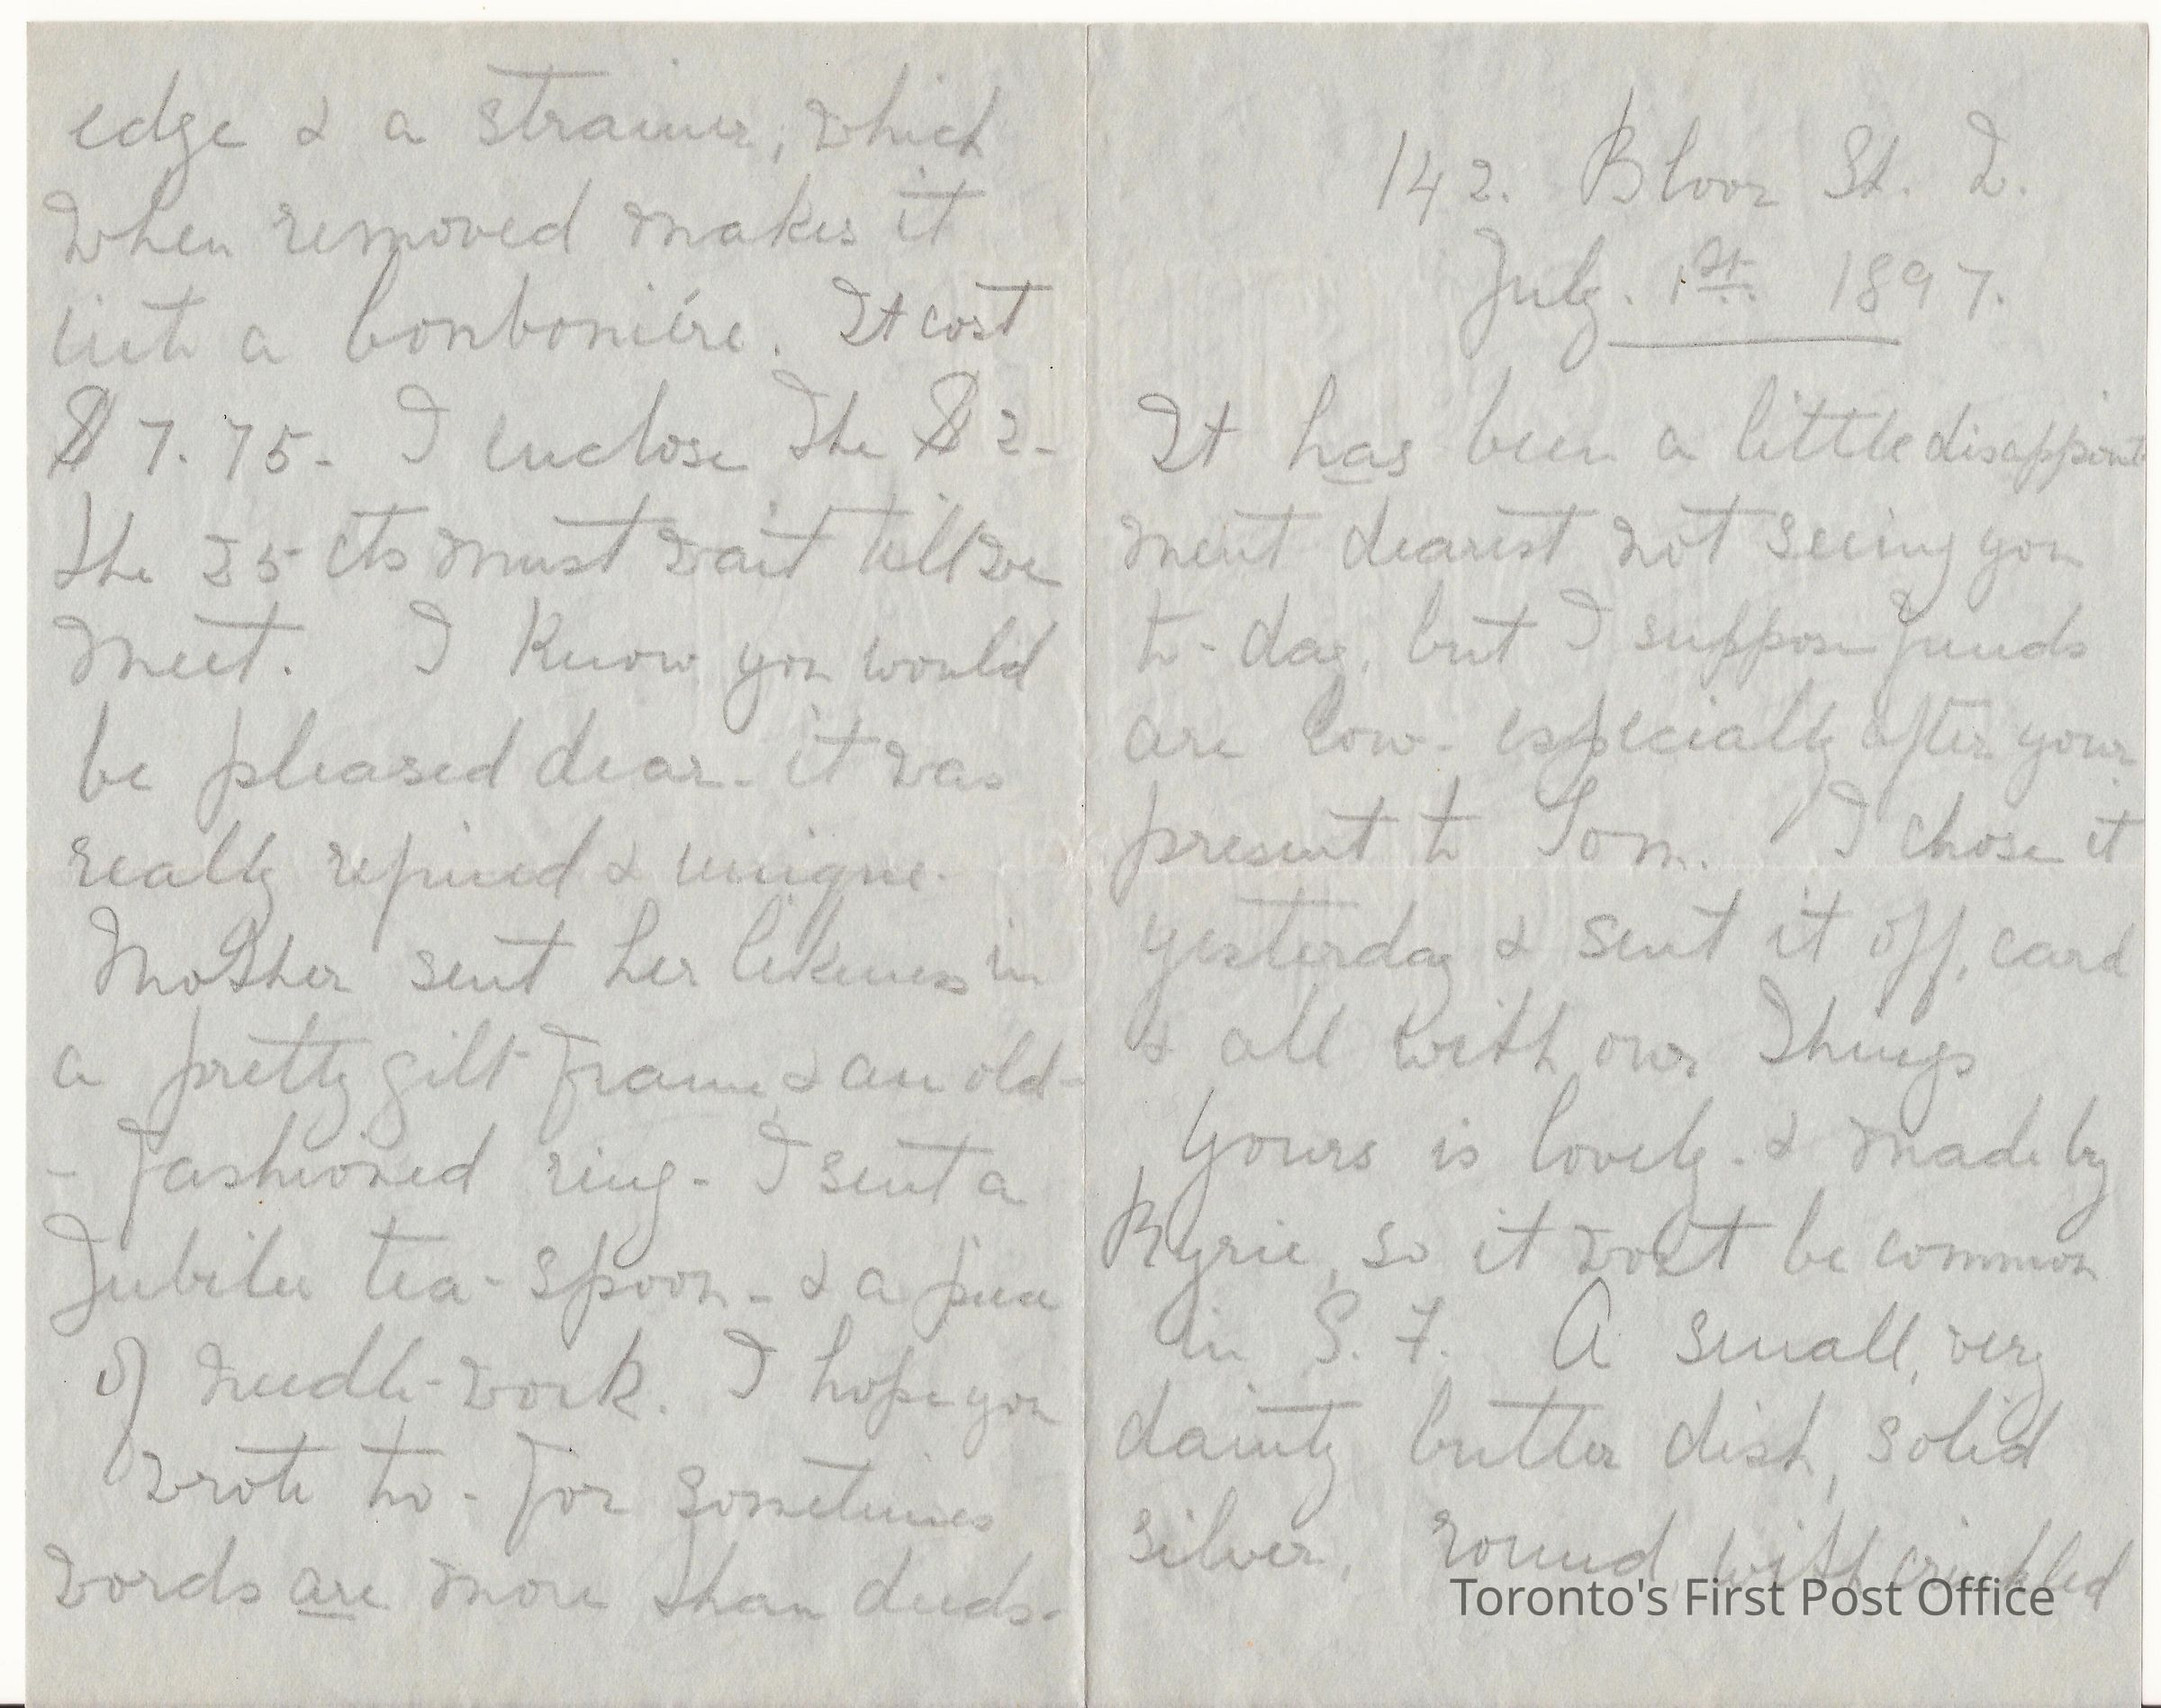 142. Bloor St. W.
July. 1st 1897.
It has been a little disappoint
ment dearest not seeing you
to-day, but I suppose funds
are low- especially after your
present to Tom. I chose it
yesterday & sent it off, card
& all with our things
Yours is lovely. & made by
Kyrie, so it won't be common
in S. F. A small, very
dainty butter dish, solid
silver, round, with crinkled
edge & a strainer, which
when removed makes it
like a bonboniére. It cost
$7.75- I enclose the $2-
the 25 cts must wait till we
meet. I know you would
be pleased dear- it was
really refined & unique.
Mother sent her likeness in
a pretty gilt frame & an old-
- fashioned ring- I sent a
Jubilee tea-spoon- & a piece
of needle-work. I hope you
wrote to- for sometimes
words are more than deeds-
Toronto's First Post Office